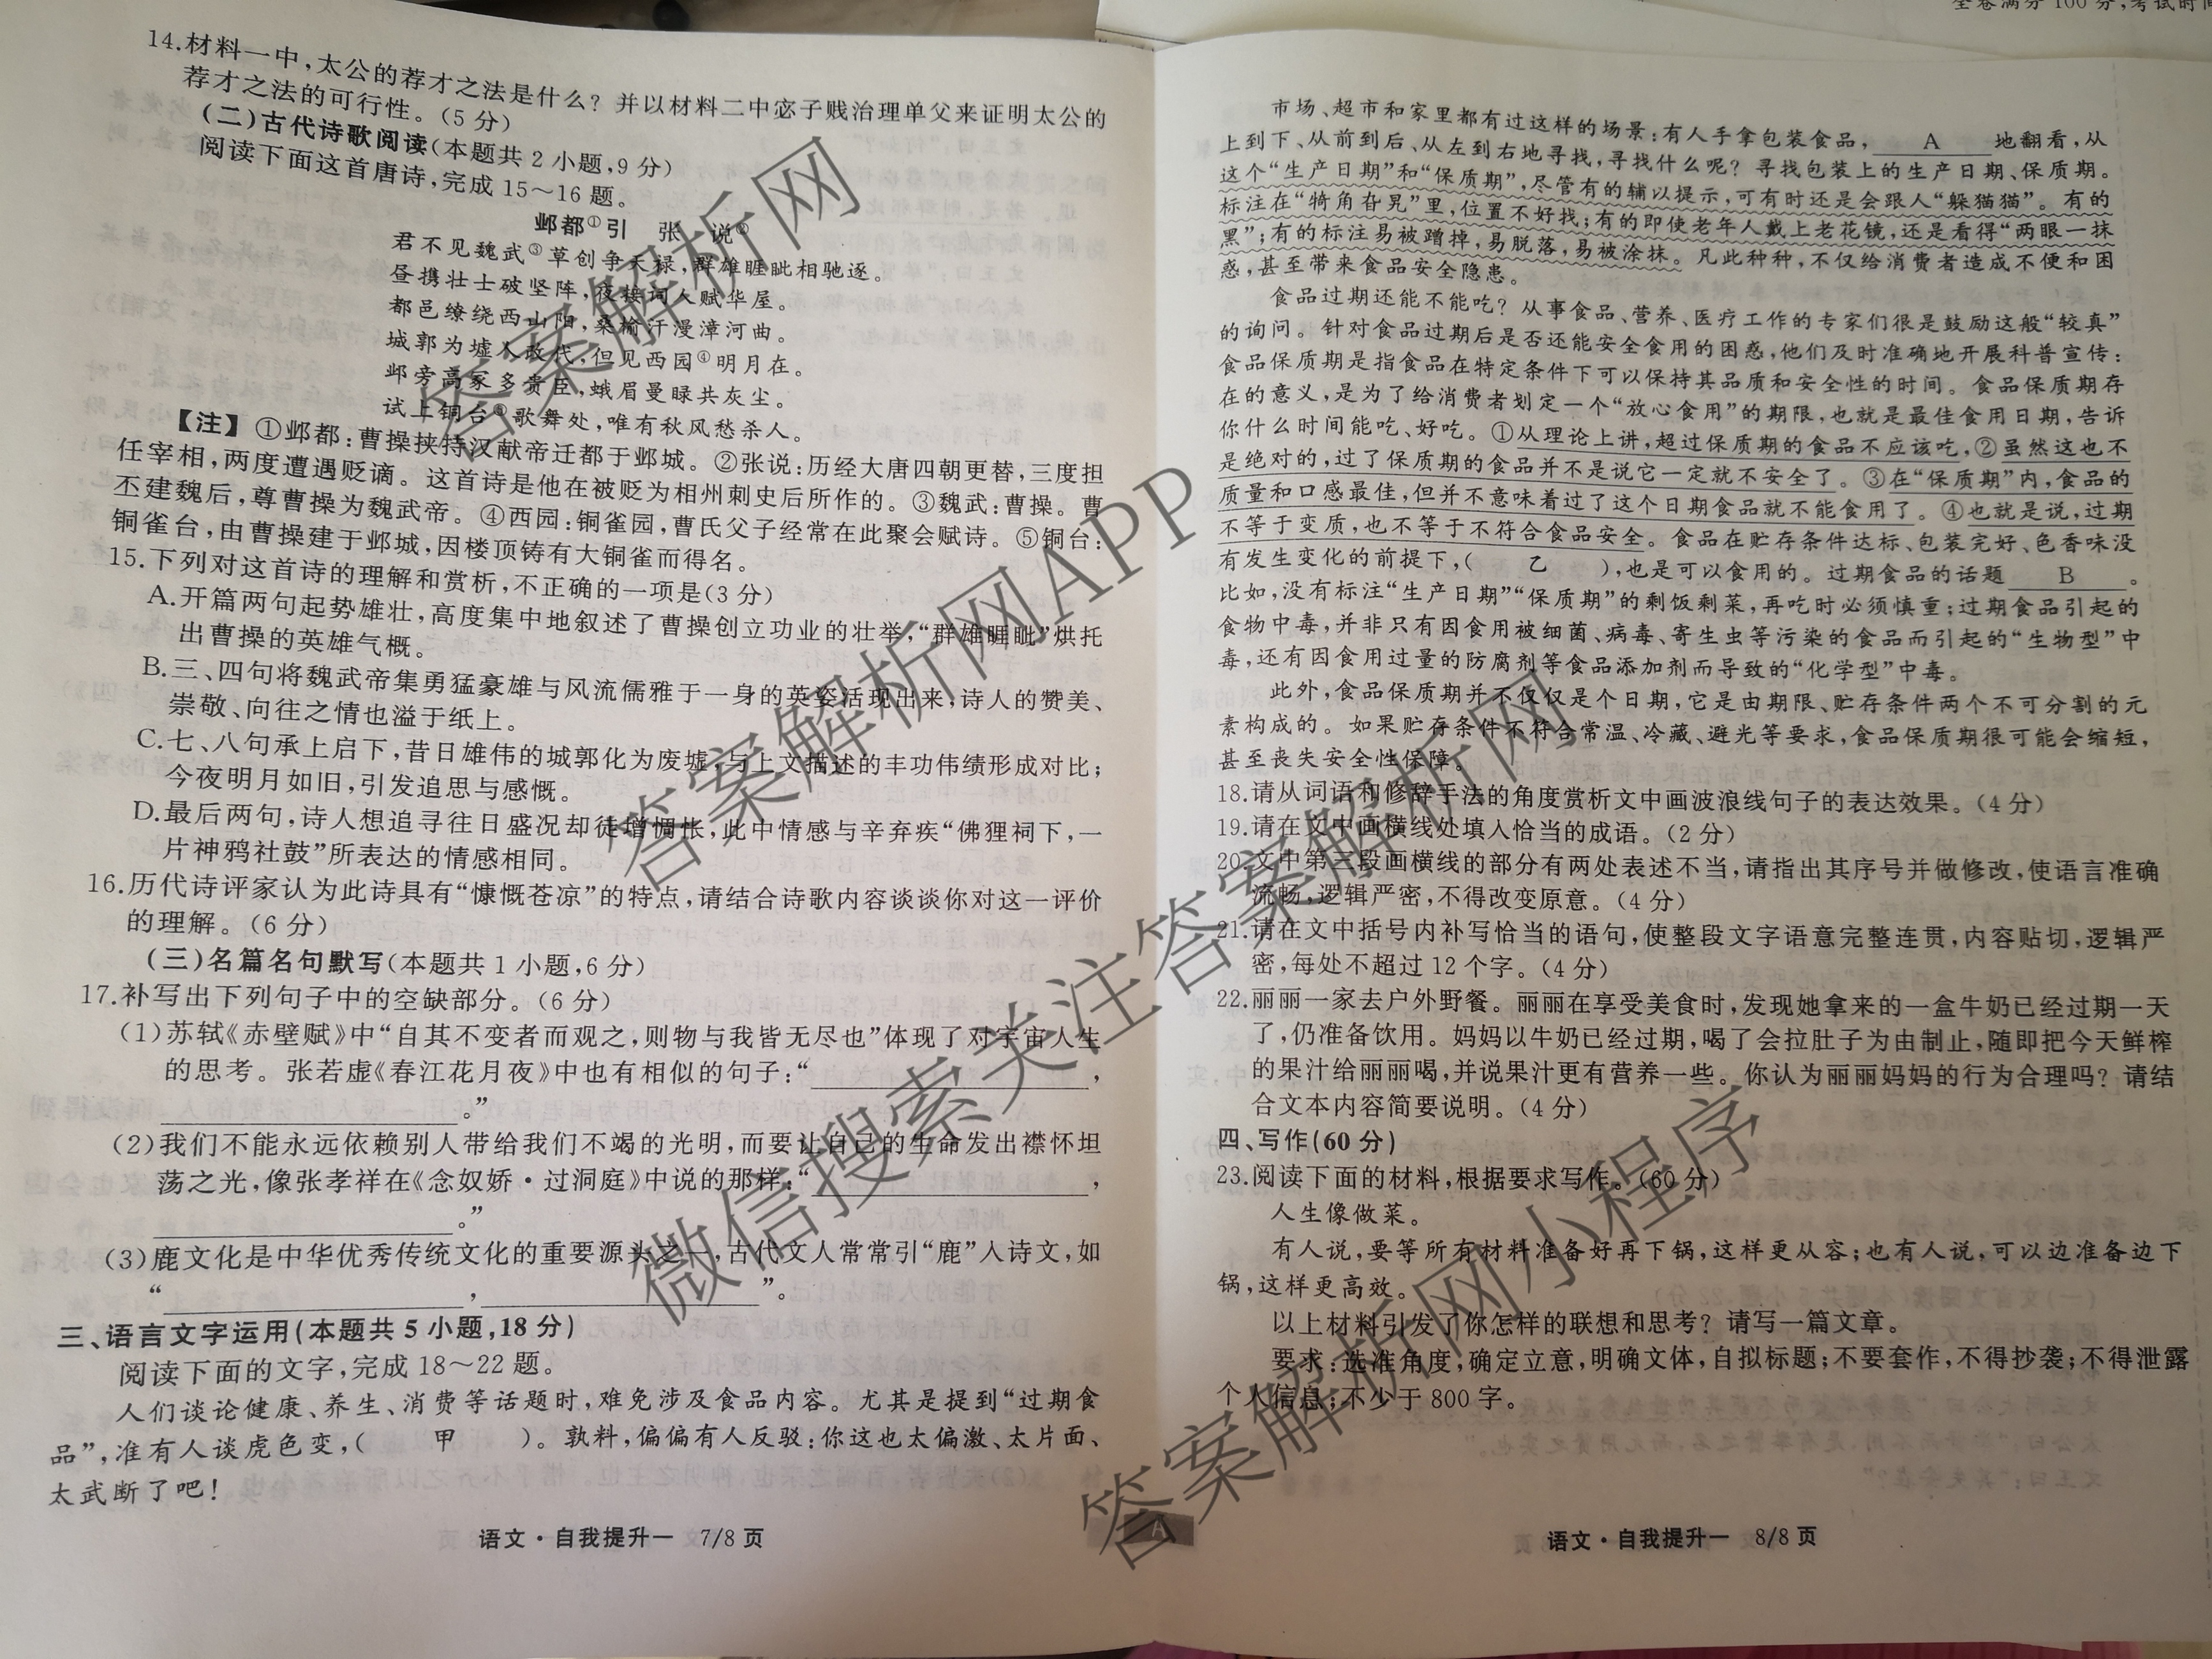 全卷满分100分,考试时间
14.材料一中,太公的荐才之法是什么？并以材料二中宓子贱治理单父来证明太公的
荐才之法的可行性。(5分)
(二)古代诗歌阅读(本题共2小题,9分)
阅读下面这首唐诗,完成15～16题。
邺都①引 张 说②
君不见魏武③草创争天禄,群雄睚眦相驰逐。
昼携壮士破坚阵,夜接词人赋华屋。
都邑缭绕西山阳,桑榆汗漫漳河曲。
城郭为墟人改代,但见西园④明月在。
邺旁高冢多贵臣,蛾眉曼睩共灰尘。
试上铜台⑤歌舞处,唯有秋风愁杀人。
【注】①邺都:曹操挟持汉献帝迁都于邺城。②张说:历经大唐四朝更替,三度担
任宰相,两度遭遇贬谪。这首诗是他在被贬为相州刺史后所作的。③魏武:曹操。曹
丕建魏后,尊曹操为魏武帝。④西园:铜雀园,曹氏父子经常在此聚会赋诗。⑤铜台:
铜雀台,由曹操建于邺城,因楼顶铸有大铜雀而得名。
15.下列对这首诗的理解和赏析,不正确的一项是(3分)
A.开篇两句起势雄壮,高度集中地叙述了曹操创立功业的壮举,“群雄睚眦”烘托
出曹操的英雄气概。
B.三、四句将魏武帝集勇猛豪雄与风流儒雅于一身的英姿活现出来,诗人的赞美、
崇敬、向往之情也溢于纸上。
C.七、八句承上启下,昔日雄伟的城郭化为废墟,与上文描述的丰功伟绩形成对比;
今夜明月如旧,引发追思与感慨。
D.最后两句,诗人想追寻往日盛况却徒增惆怅,此中情感与辛弃疾“佛狸祠下,一
片神鸦社鼓”所表达的情感相同。
16.历代诗评家认为此诗具有“慷慨苍凉”的特点,请结合诗歌内容谈谈你对这一评价
的理解。(6分)
(三)名篇名句默写(本题共1小题,6分)
17.补写出下列句子中的空缺部分。(6分)
(1)苏轼《赤壁赋》中“自其不变者而观之,则物与我皆无尽也”体现了对宇宙人生
的思考。张若虚《春江花月夜》中也有相似的句子:“____________,
____________。”
(2)我们不能永远依赖别人带给我们不竭的光明,而要让自己的生命发出襟怀坦
荡之光,像张孝祥在《念奴娇·过洞庭》中说的那样:“____________,
____________。”
(3)鹿文化是中华优秀传统文化的重要源头之一,古代文人常常引“鹿”入诗文,如
“____________,____________”。
三、语言文字运用(本题共5小题,18分)
阅读下面的文字,完成18～22题。
人们谈论健康、养生、消费等话题时,难免涉及食品内容。尤其是提到“过期食
品”,准有人谈虎色变,( 甲 )。孰料,偏偏有人反驳:你这也太偏激、太片面、
太武断了吧!
语文·自我提升一 7/8页
A
市场、超市和家里都有过这样的场景:有人手拿包装食品,____A____地翻看,从
上到下、从前到后、从左到右地寻找,寻找什么呢？寻找包装上的生产日期、保质期。
这个“生产日期”和“保质期”,尽管有的辅以提示,可有时还是会跟人“躲猫猫”。有的
标注在“犄角旮旯”里,位置不好找;有的即使老年人戴上老花镜,还是看得“两眼一抹
黑”;有的标注易被蹭掉,易脱落,易被涂抹。凡此种种,不仅给消费者造成不便和困
惑,甚至带来食品安全隐患。
食品过期还能不能吃？从事食品、营养、医疗工作的专家们很是鼓励这般“较真”
的询问。针对食品过期后是否还能安全食用的困惑,他们及时准确地开展科普宣传:
食品保质期是指食品在特定条件下可以保持其品质和安全性的时间。食品保质期存
在的意义,是为了给消费者划定一个“放心食用”的期限,也就是最佳食用日期,告诉
你什么时间能吃、好吃。①从理论上讲,超过保质期的食品不应该吃,②虽然这也不
是绝对的,过了保质期的食品并不是说它一定就不安全了。③在“保质期”内,食品的
质量和口感最佳,但并不意味着过了这个日期食品就不能食用了。④也就是说,过期
不等于变质,也不等于不符合食品安全。食品在贮存条件达标、包装完好、色香味没
有发生变化的前提下,( 乙 ),也是可以食用的。过期食品的话题____B____。
比如,没有标注“生产日期”“保质期”的剩饭剩菜,再吃时必须慎重;过期食品引起的
食物中毒,并非只有因食用被细菌、病毒、寄生虫等污染的食品而引起的“生物型”中
毒,还有因食用过量的防腐剂等食品添加剂而导致的“化学型”中毒。
此外,食品保质期并不仅仅是个日期,它是由期限、贮存条件两个不可分割的元
素构成的。如果贮存条件不符合常温、冷藏、避光等要求,食品保质期很可能会缩短,
甚至丧失安全性保障。
18.请从词语和修辞手法的角度赏析文中画波浪线句子的表达效果。(4分)
19.请在文中画横线处填入恰当的成语。(2分)
20.文中第三段画横线的部分有两处表述不当,请指出其序号并做修改,使语言准确
流畅,逻辑严密,不得改变原意。(4分)
21.请在文中括号内补写恰当的语句,使整段文字语意完整连贯,内容贴切,逻辑严
密,每处不超过12个字。(4分)
22.丽丽一家去户外野餐。丽丽在享受美食时,发现她拿来的一盒牛奶已经过期一天
了,仍准备饮用。妈妈以牛奶已经过期,喝了会拉肚子为由制止,随即把今天鲜榨
的果汁给丽丽喝,并说果汁更有营养一些。你认为丽丽妈妈的行为合理吗？请结
合文本内容简要说明。(4分)
四、写作(60分)
23.阅读下面的材料,根据要求写作。(60分)
人生像做菜。
有人说,要等所有材料准备好再下锅,这样更从容;也有人说,可以边准备边下
锅,这样更高效。
以上材料引发了你怎样的联想和思考？请写一篇文章。
要求:选准角度,确定立意,明确文体,自拟标题;不要套作,不得抄袭;不得泄露
个人信息;不少于800字。
语文·自我提升一 8/8页
答案解析网
答案解析网APP
微信搜索关注答案解析网
答案解析网小程序